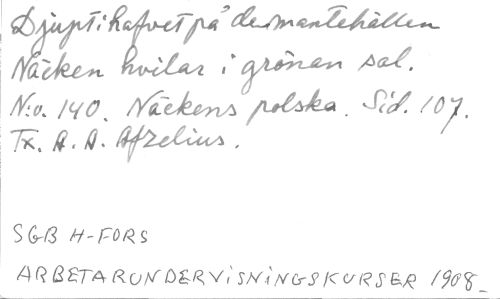 Djupt i hafvet på demantehällen
Näcken hvilar i grönan sal.
N:o. 140. Näckens polska. Sid. 107.
Tx. A. A. Afzelius.
SGB H-FORS
ARBETARUNDERVISNINGSKURSER 1908_